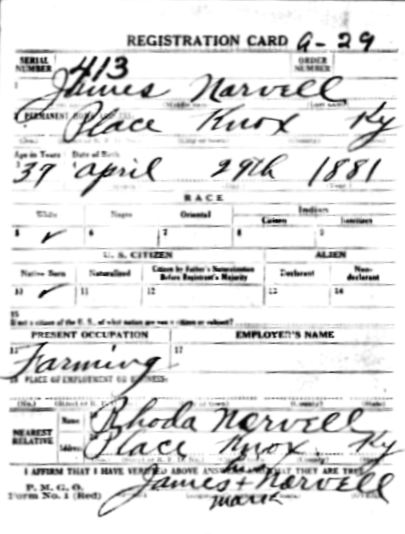 REGISTRATION CARD G-29
SERIAL NUMBER 413 ORDER NUMBER
1 James Norvell
2 PERMANENT HOME ADDRESS:
Place Knox Ky
Age in Years Date of Birth
37 April 29th 1881
RACE
White Negro Oriental Indian
Citizen
5 ✓ 6 7 8 9
U. S. CITIZEN ALIEN
Native Born Naturalized Citizen by Father's Naturalization Before Registrant's Majority Declarant Non-declarant
10 ✓ 11 12 13 14
15
If not a citizen of the U. S., of what nation are you a citizen or subject?
PRESENT OCCUPATION EMPLOYER'S NAME
Farming 17
18 PLACE OF EMPLOYMENT OR BUSINESS:
(No.) (County) (State)
NEAREST RELATIVE
Name Rhoda Norvell
Address Place Knox Ky
I AFFIRM THAT I HAVE VERIFIED ABOVE ANSWERS THAT THEY ARE TRUE
P. M. G. O.
Form No. 1 (Red) James + Norvell
mark